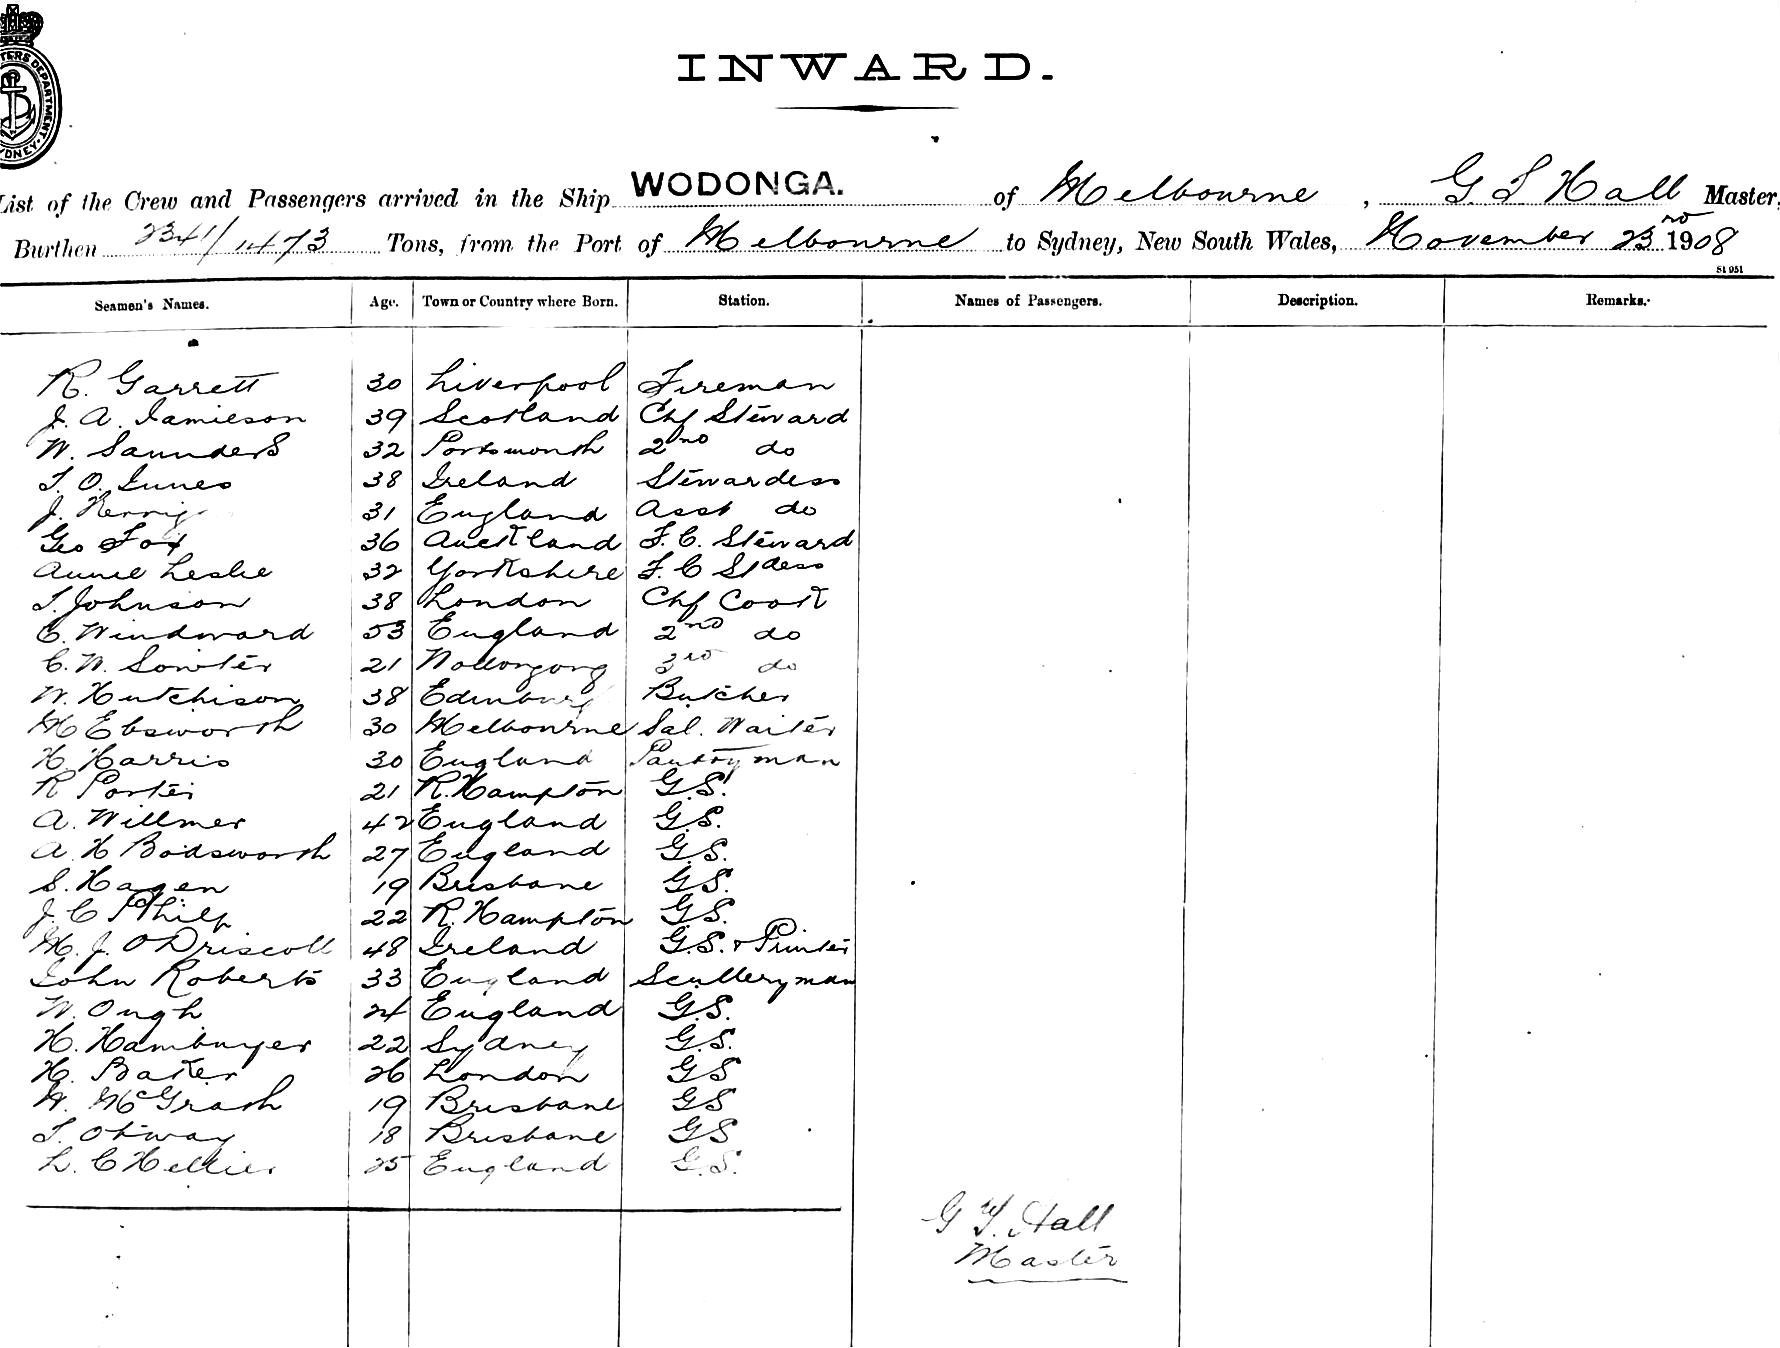 INWARD.
List of the Crew and Passengers arrived in the Ship WODONGA. of Melbourne, Hall Master,
Burthen 2341/1473 Tons, from the Port of Melbourne to Sydney, New South Wales, November 23rd 1908
51 951
Seamen's Names. Age. Town or Country where Born. Station. Names of Passengers. Description. Remarks.
R. Garrett 30 Liverpool Fireman
J. A. Jamieson 39 Scotland Chf Steward
W. Saunders 32 Portsmouth 2nd do
38 Ireland Stewardess
J. 31 England Asst do
Geo Fox 36 Auckland F. C. Steward
Annie Leslie 32 Yorkshire F. C Stdess
Johnson 38 London Chf Cook
C. Windward 53 England 2nd do
C. W. Sowter 21 Wollongong 3rd do
W. Hutchison 38 Edinburg Butcher
M Ebsworth 30 Melbourne Sal. Waiter
H. Harris 30 England Pantryman
R Porter 21 R. Hampton G.S.
A. Willmer 42 England G.S.
A. H Bodsworth 27 England G.S.
S. Hagen 19 Brisbane G.S.
J. C Philp 22 R. Hampton G.S.
M. J. O'Driscoll 48 Ireland G.S. + Printer
John Roberts 33 England Sculleryman
W. Ough 24 England G.S.
H. Hamburger 22 Sydney G.S.
H. 26 London GS
W. McGrath 19 Brisbane GS
T. Otway 18 Brisbane GS
L. C Hellier 25 England G.S.
Hall
Master